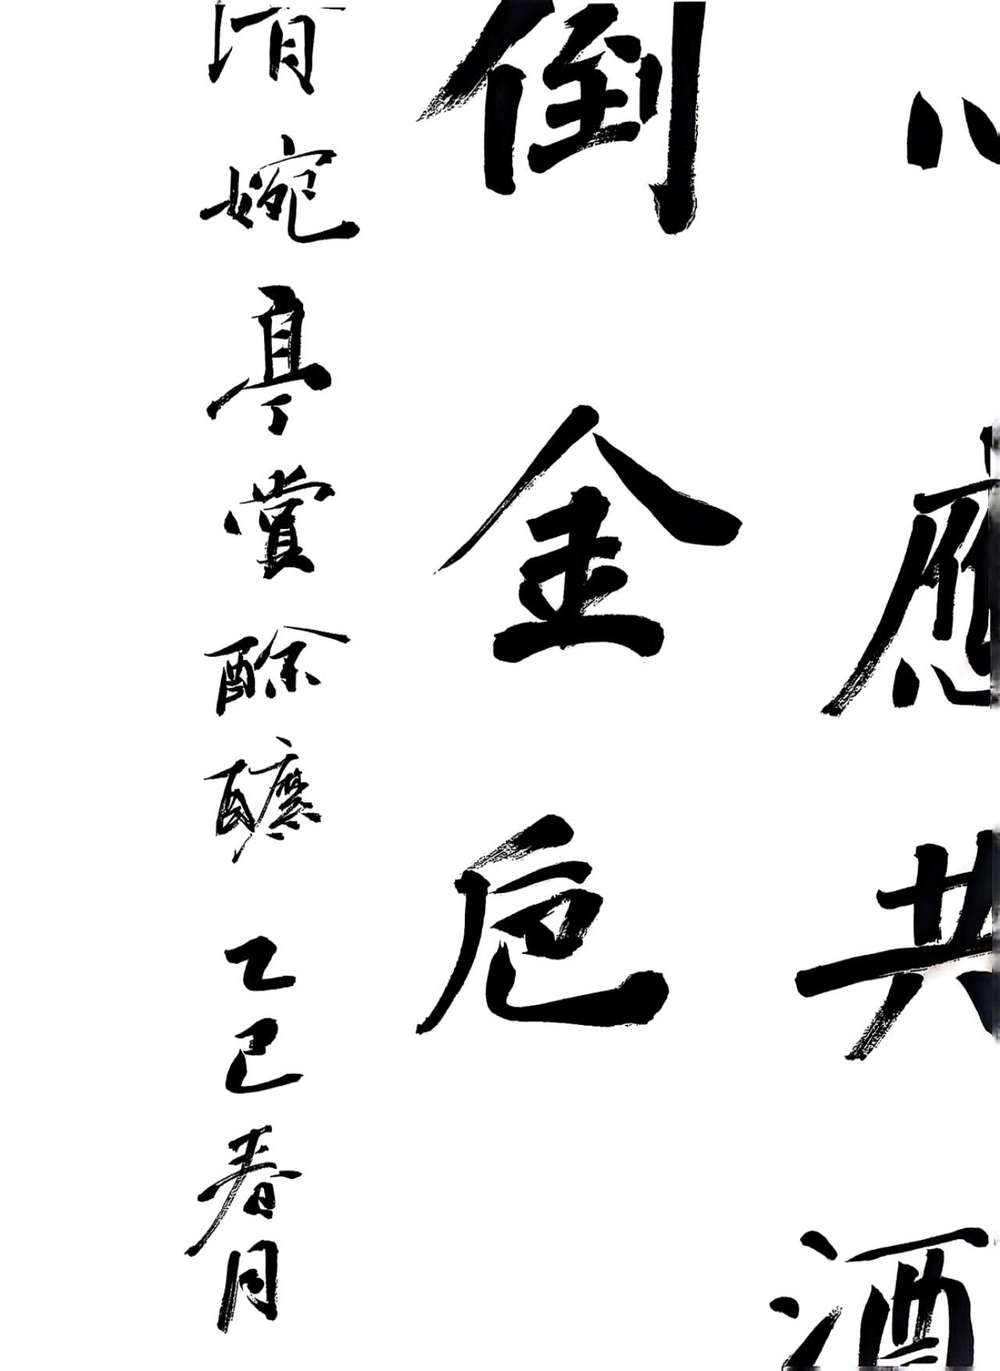 應共酒
倒金卮
清婉亭賞酴醾 乙巳春月